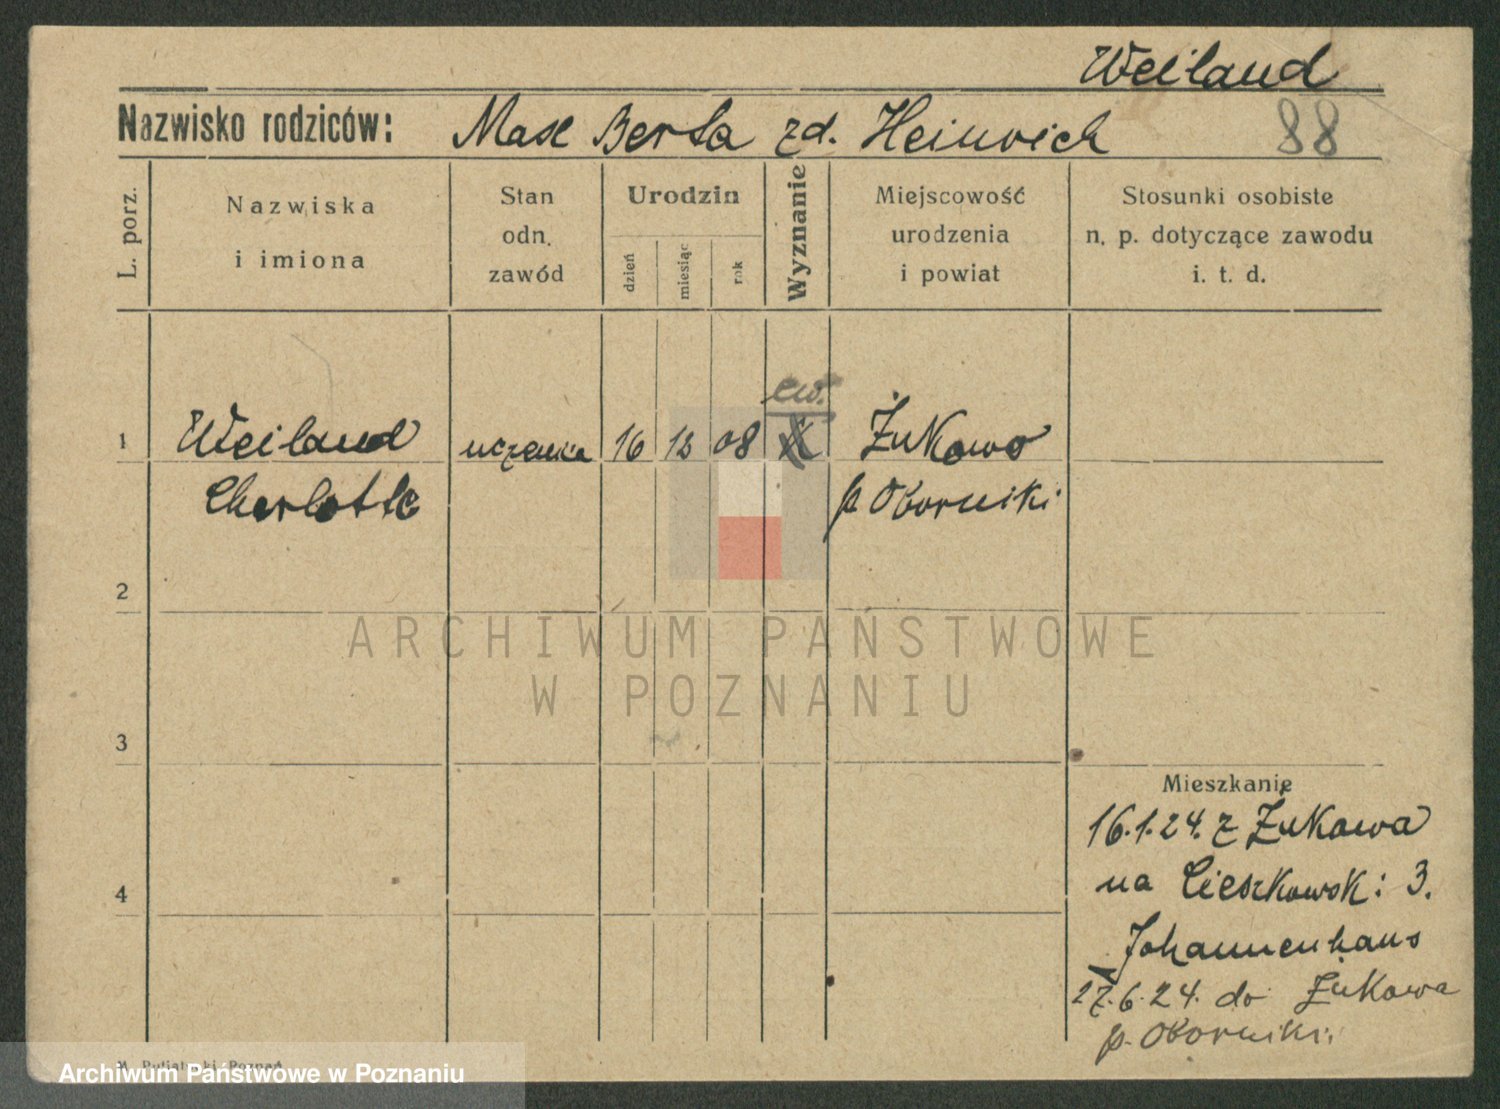 Weiland
Nazwisko rodziców: Max Berta zd. Heinrich 88
L. porz.
Nazwiska
i imiona
Stan
odn.
zawód
Urodzin
dzień
miesiąc
rok
Wyznanie
Miejscowość
urodzenia
i powiat
Stosunki osobiste
n. p. dotyczące zawodu
i. t. d.
ew.
1 Weiland uczenica 16 12 08 Żukowo
Charlotte p Oborniki
2
ARCHIWUM PAŃSTWOWE
W POZNANIU
3
Mieszkanie
16.1.24. z Żukowa
4 na Cieszkowsk: 3.
Johannenhaus
27.6.24. do Żukowa
p. Oborniki.
Poznań
Archiwum Państwowe w Poznaniu